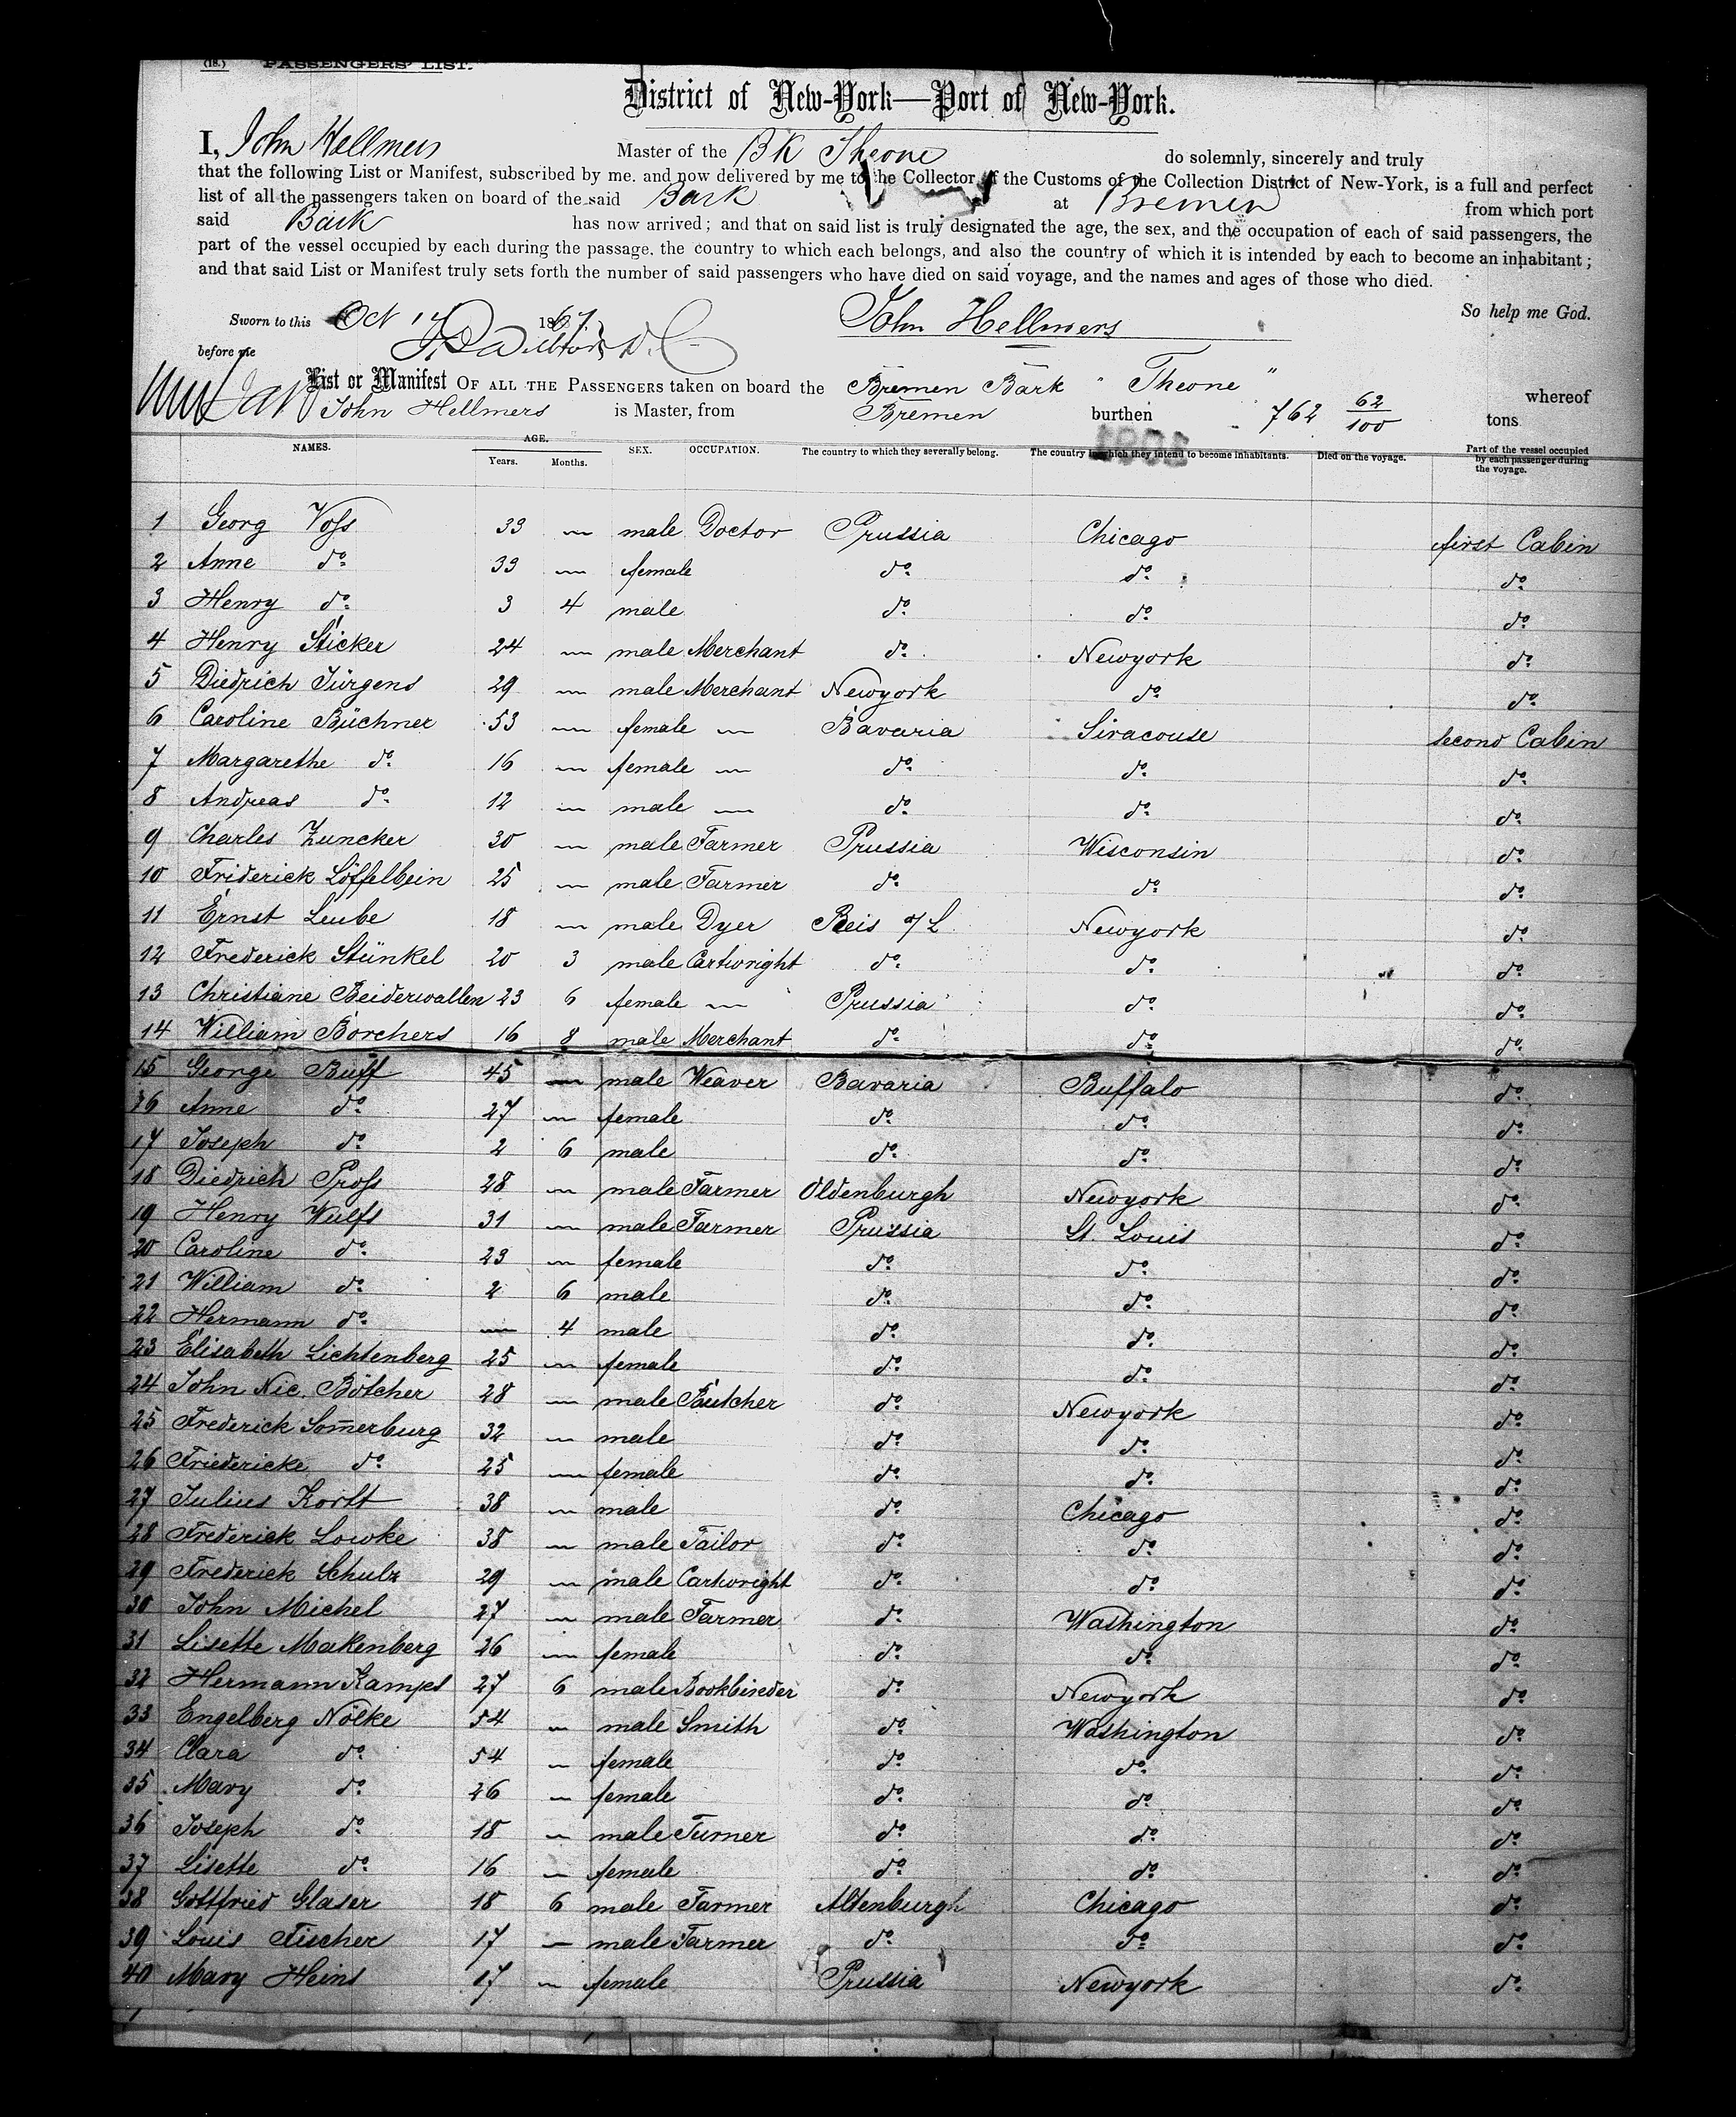 (18.) PASSENGERS' LIST.
District of New-York—Port of New-York.
I, John Hellmers Master of the BK Theone do solemnly, sincerely and truly
that the following List or Manifest, subscribed by me. and now delivered by me to the Collector of the Customs of the Collection District of New-York, is a full and perfect
list of all the passengers taken on board of the said Bark at Bremen from which port
said Bark has now arrived; and that on said list is truly designated the age, the sex, and the occupation of each of said passengers, the
part of the vessel occupied by each during the passage, the country to which each belongs, and also the country of which it is intended by each to become an inhabitant;
and that said List or Manifest truly sets forth the number of said passengers who have died on said voyage, and the names and ages of those who died.
So help me God.
Sworn to this Oct 1867. John Hellmers
before me
List or Manifest OF ALL THE PASSENGERS taken on board the Bremen Bark "Theone" whereof
John Hellmers is Master, from Bremen burthen 762 62/100 tons
NAMES. AGE. Years. Months. SEX. OCCUPATION. The country to which they severally belong. The country in which they intend to become inhabitants. Died on the voyage. Part of the vessel occupied by each passenger during the voyage.
1 Georg Voſs 33 — male Doctor Prussia Chicago first Cabin
2 Anne do. 33 — female do. do. do.
3 Henry do. 3 4 male do. do. do.
4 Henry Sticker 24 — male Merchant do. Newyork do.
5 Diedrich Jürgens 29 — male Merchant Newyork do. do.
6 Caroline Büchner 53 — female — Bavaria Siracouse second Cabin
7 Margarethe do. 16 — female — do. do. do.
8 Andreas do. 12 — male — do. do. do.
9 Charles Zuncker 30 — male Farmer Prussia Wisconsin do.
10 Friderick Löffelbein 25 — male Farmer do. do. do.
11 Ernst Leube 18 — male Dyer Reis o/L Newyork do.
12 Frederick Stünkel 20 3 male Cartwright do. do. do.
13 Christiane Beiderwallen 23 6 female — Prussia do. do.
14 William Borchers 16 8 male Merchant do. do. do.
15 George Buff 45 — male Weaver Bavaria Buffalo do.
16 Anne do. 27 — female do. do. do.
17 Joseph do. 2 6 male do. do. do.
18 Diedrich Proſs 28 — male Farmer Oldenburgh Newyork do.
19 Henry Wulfs 31 — male Farmer Prussia St. Louis do.
20 Caroline do. 23 — female do. do. do.
21 William do. 2 6 male do. do. do.
22 Hermann do. — 4 male do. do. do.
23 Elisabeth Lichtenberg 25 — female do. do. do.
24 John Nic. Bötcher 28 — male Butcher do. Newyork do.
25 Frederick Som̅erburg 32 — male do. do. do.
26 Friedericke do. 25 — female do. do. do.
27 Julius Kortt 38 — male do. Chicago do.
28 Frederick Lowke 38 — male Tailor do. do. do.
29 Frederick Schulz 29 — male Cartwright do. do. do.
30 John Michel 27 — male Farmer do. Washington do.
31 Lisette Makenberg 26 — female do. do. do.
32 Hermann Kamps 27 6 male Bookbinder do. Newyork do.
33 Engelberg Nölke 54 — male Smith do. Washington do.
34 Clara do. 54 — female do. do. do.
35 Mary do. 26 — female do. do. do.
36 Joseph do. 18 — male Turner do. do. do.
37 Lisette do. 16 — female do. do. do.
38 Gottfried Glaser 18 6 male Farmer Altenburgh Chicago do.
39 Louis Fischer 17 — male Farmer do. do. do.
40 Mary Heins 17 — female Prussia Newyork do.